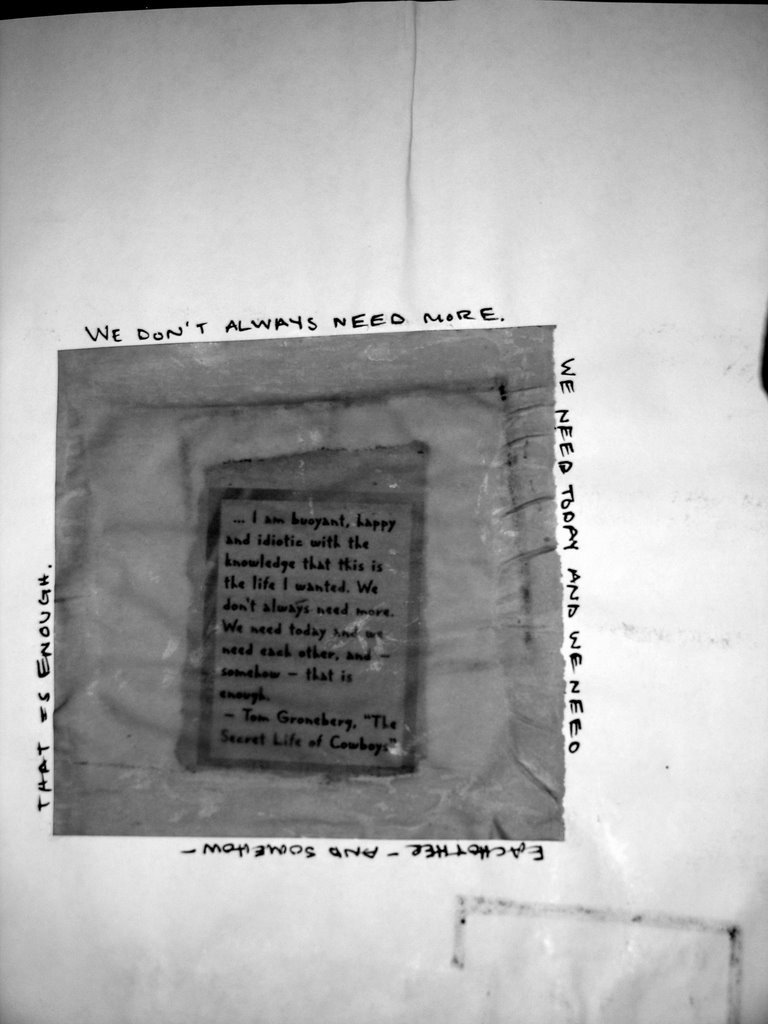 WE DON'T ALWAYS NEED MORE.
WE NEED TODAY AND WE NEED
EACHOTHER - AND SOMEHOW -
THAT IS ENOUGH.
... I am buoyant, happy
and idiotic with the
knowledge that this is
the life I wanted. We
don't always need more.
We need today and we
need each other, and –
somehow – that is
enough.
– Tom Groneberg, "The
Secret Life of Cowboys"